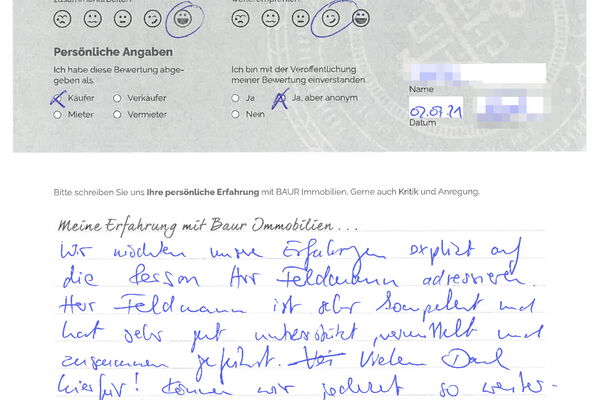 zusammenarbeiten
weiterempfehlen
Persönliche Angaben
Ich habe diese Bewertung abge-
geben als:
Ich bin mit der Veröffentlichung
meiner Bewertung einverstanden.
Käufer
Verkäufer
Ja
Ja, aber anonym
Mieter
Vermieter
Nein
Name
02.07.21
Datum
Bitte schreiben Sie uns Ihre persönliche Erfahrung mit BAUR Immobilien. Gerne auch Kritik und Anregung.
Meine Erfahrung mit Baur Immobilien...
Wir möchten unsere Erfahrungen explizit auf
die Person Herr Feldmann adressieren.
Herr Feldmann ist sehr kompetent und
hat sehr gut unterstützt, vermittelt und
zusammen geführt. Vielen Dank
hierfür! Können wir jederzeit so weiter-